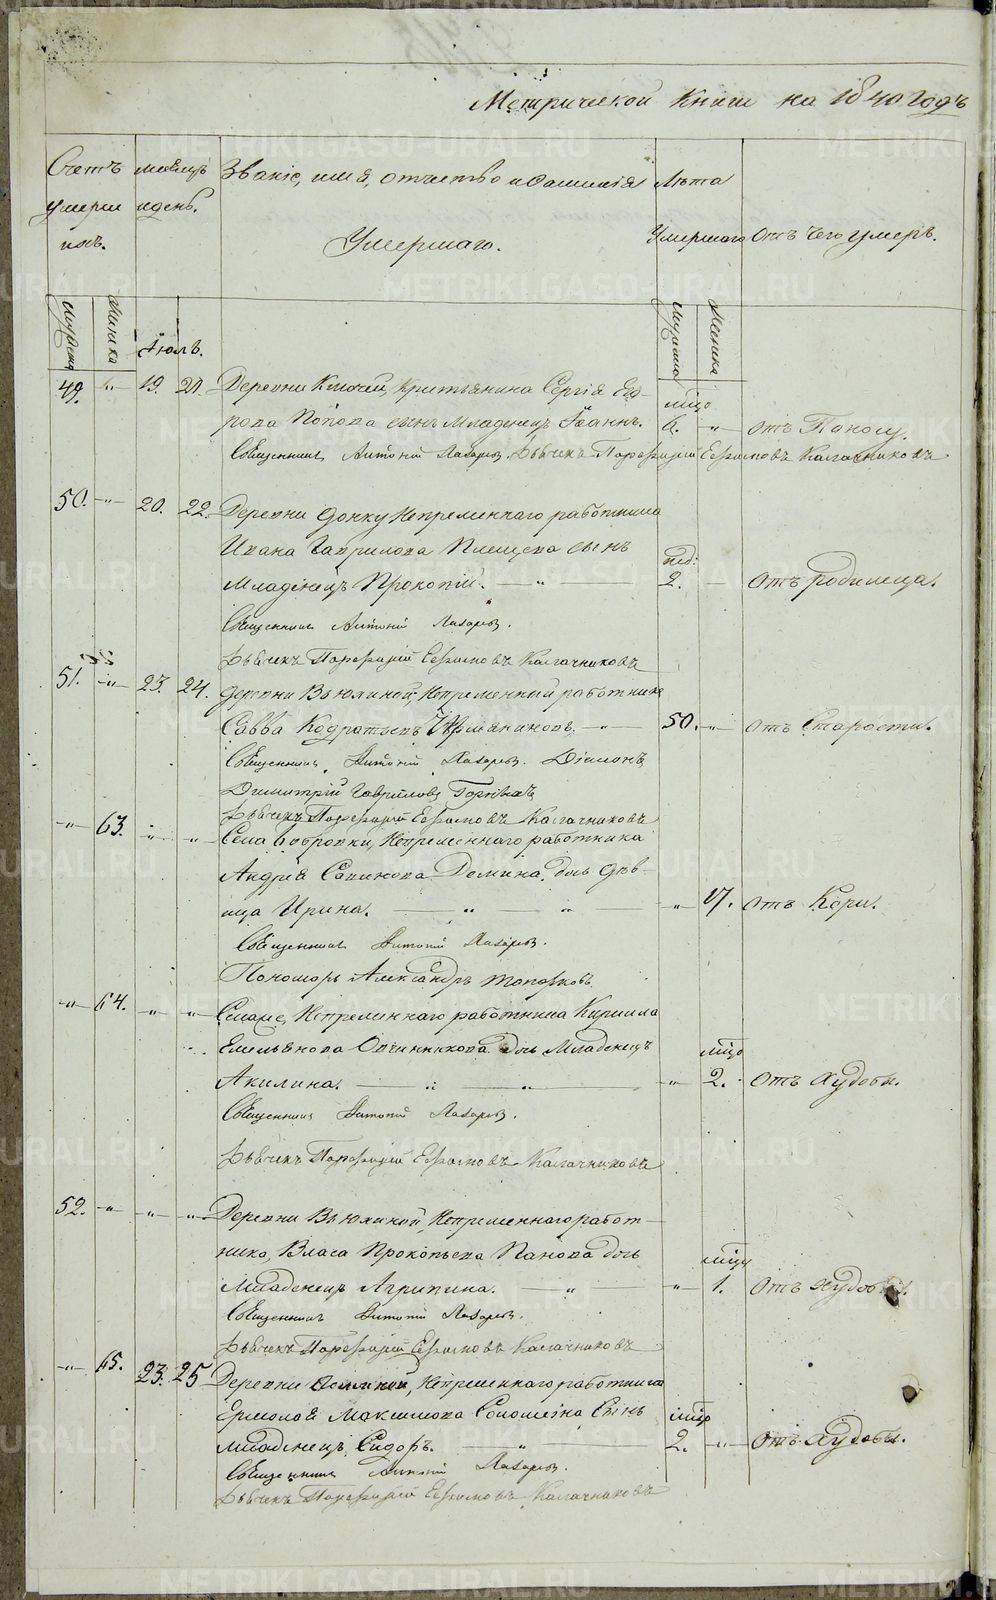 Метрической Книги на 1840 годъ
Счетъ умерших Мѣсяцъ и день. Званіе, имя, отчество и фамилія Умершаго. Лѣта Умершаго Отъ чего умеръ.
Мужска Женска Мужска Женска
Іюль.
49. " 19. 21. Деревни Ключей, крестьянина Сергія Его-
рова Попова сынъ Младенецъ Іоаннъ. мцо 6. " отъ Поносу.
Священникъ Антоній Лазаревъ. Дьячекъ Порфирій Ефимовъ Калачниковъ
50. " 20. 22. Деревни непременнаго работника
Ивана Гаврилова Плещева сынъ
Младенецъ Прокопій. " нед: 2. отъ родимца.
Священникъ Антоній Лазаревъ.
Дьячекъ Порфирій Ефимовъ Калачниковъ
51. " 23. 24. Деревни Вьюхиной, Непременный работникъ
Савва Кодратьевъ 50. " отъ Старости.
Священникъ Антоній Лазаревъ. Діаконъ
Димитрій Гавриловъ
Дьячекъ Порфирій Ефимовъ Калачниковъ
" 63. " " Села Бобровки, Непременнаго работника
Андрея Савинова Демина, дочь дѣв-
ица Ирина. " " " 17. отъ Кори.
Священникъ Антоній Лазаревъ.
Пономарь Александръ Топорковъ.
" 64. " " Села, Непременнаго работника Кирилла
Емельянова Овчинникова дочь Младенецъ
Акилина. " " " мцо 2. отъ худобы.
Священникъ Антоній Лазаревъ.
Дьячекъ Порфирій Ефимовъ Калачниковъ
52. " " " Деревни Вьюхиной, Непременнаго работ-
ника, Власа Прокопьева Панова дочь
Младенецъ Агрипина. " " мцо 1. отъ худобы.
Священникъ Антоній Лазаревъ.
Дьячекъ Порфирій Ефимовъ Калачниковъ
" 65. 23. 25 Деревни Непременнаго работника
Ермолая Максимова Соломеина Сынъ
младенецъ, Сидоръ. " мцо 2. " отъ худобы.
Священникъ Антоній Лазаревъ.
Дьячекъ Порфирій Ефимовъ Калачниковъ
METRIKI.GASO-URAL.RU